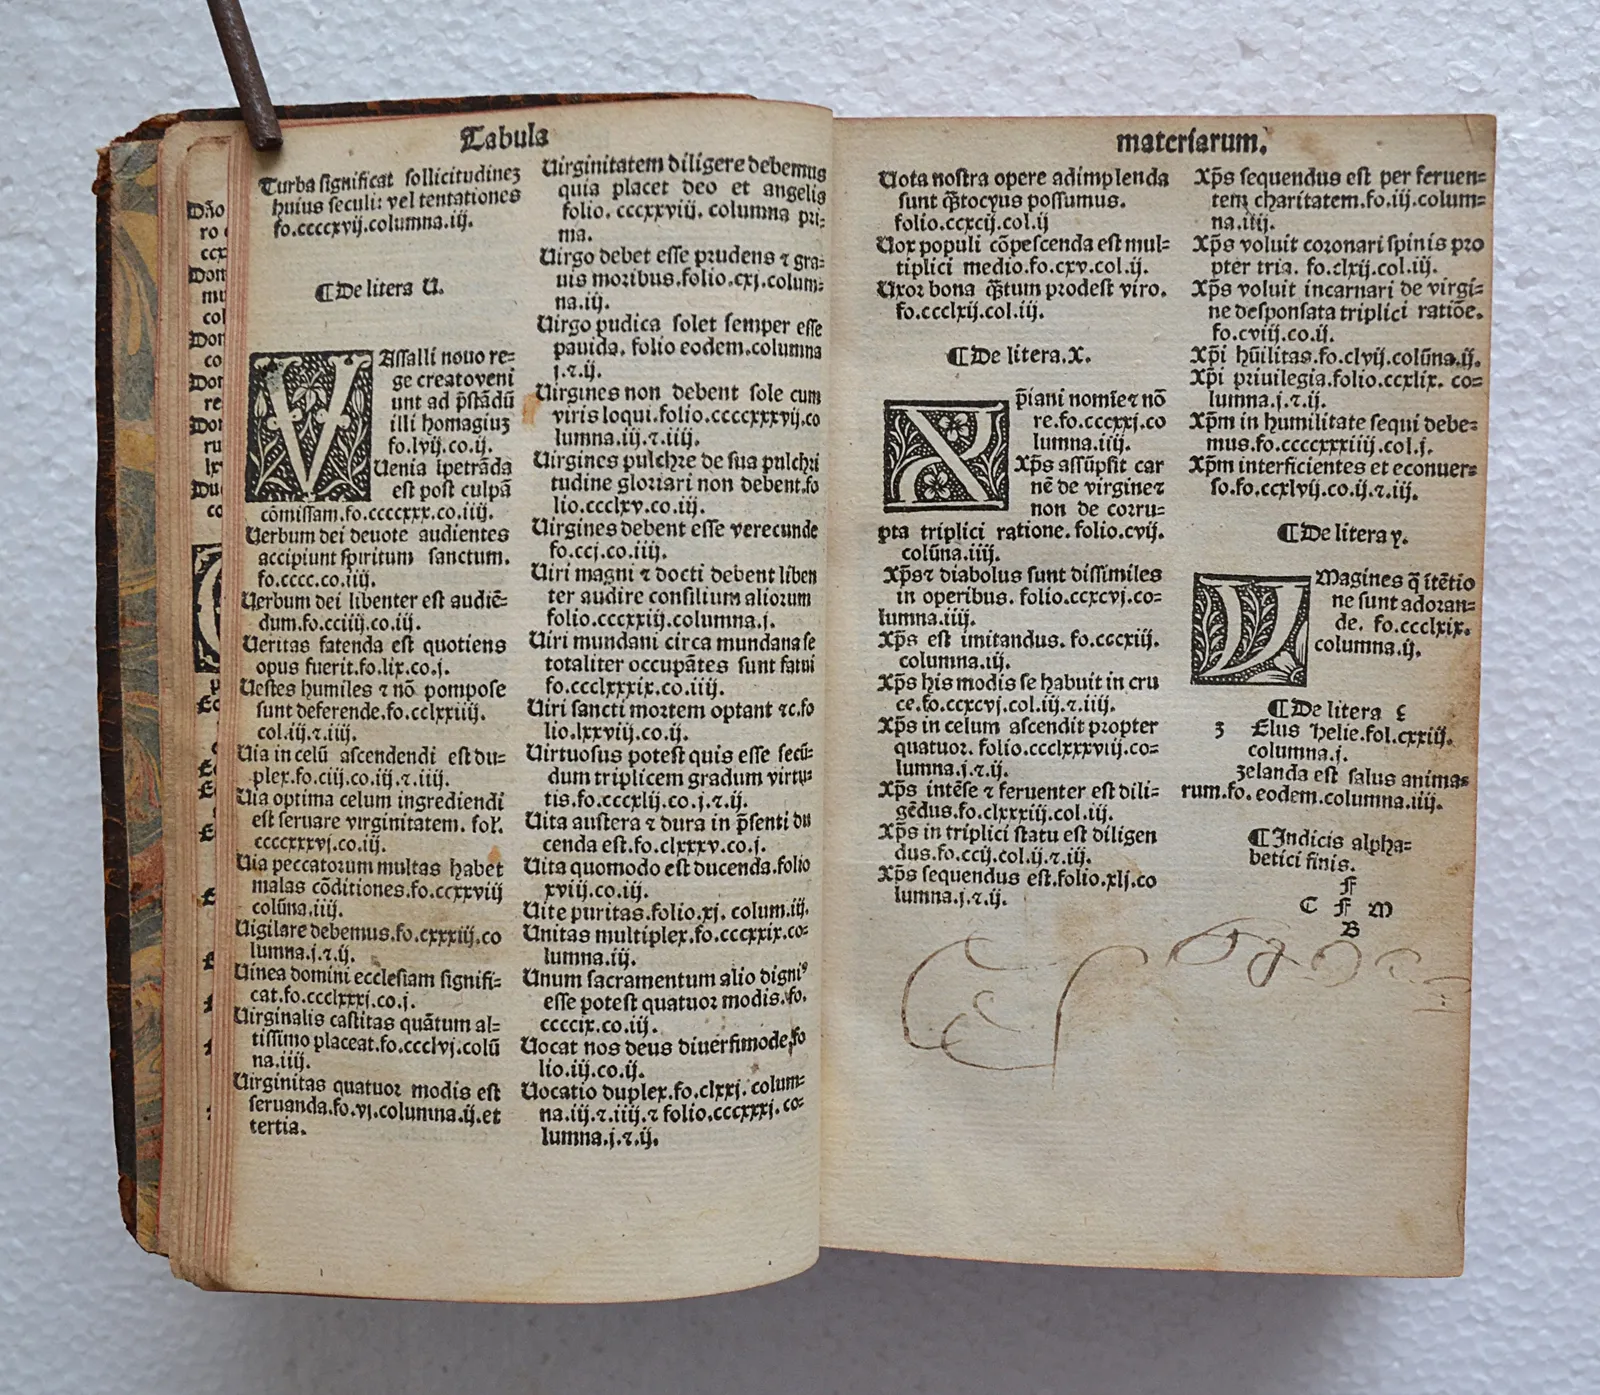 Tabula
Turba significat sollicitudineꝫ
huius seculi: vel tentationes
fo.ccccxvij.columna.iij.
¶ De litera U.
VAssalli nouo re-
ge creato veni
unt ad p̄stādū
illi homagiuꝫ
fo.lvij.co.ij.
Uenia īpetrāda
est post culpā
cōmissam.fo.ccccxxx.co.iiij.
Uerbum dei deuote audientes
accipiunt spiritum sanctum.
fo.cccc.co.iiij.
Uerbum dei libenter est audiē-
dum.fo.cciiij.co.iij.
Ueritas fatenda est quotiens
opus fuerit.fo.lix.co.j.
Uestes humiles ⁊ nō pompose
sunt deferende.fo.cclxxiiij.
col.iij.⁊.iiij.
Uia in celū ascendendi est du-
plex.fo.ciij.co.iij.⁊.iiij.
Uia optima celum ingrediendi
est seruare virginitatem. fol.
ccccxxxvj.co.iij.
Uia peccatorum multas habet
malas cōditiones.fo.ccxxviij
colūna.iiij.
Uigilare debemus.fo.cxxxiij.co
lumna.j.⁊.ij.
Uinea domini ecclesiam signifi-
cat.fo.ccclxxxj.co.j.
Uirginalis castitas quātum al-
tissimo placeat.fo.ccclvj.colū
na.iiij.
Uirginitas quatuor modis est
seruanda.fo.vj.columna.ij.et
tertia.
Uirginitatem diligere debemus
quia placet deo et angelis
folio. cccxxviij. columna pri-
ma.
Uirgo debet esse prudens ⁊ gra-
uis moribus.folio.cxj.colum-
na.iij.
Uirgo pudica solet semper esse
pauida. folio eodem.columna
j.⁊.ij.
Uirgines non debent sole cum
viris loqui.folio.ccccxxxvij.co
lumna.iij.⁊.iiij.
Uirgines pulchre de sua pulchri
tudine gloriari non debent.fo
lio.ccclxv.co.iij.
Uirgines debent esse verecunde
fo.ccj.co.iiij.
Uiri magni ⁊ docti debent liben
ter audire consilium aliorum
folio.cccxxiij.columna.j.
Uiri mundani circa mundana se
totaliter occupātes sunt fatui
fo.ccclxxxix.co.iiij.
Uiri sancti mortem optant ⁊c.fo
lio.lxxviij.co.ij.
Uirtuosus potest quis esse secū-
dum triplicem gradum virtu-
tis.fo.cccxlij.co.j.⁊.ij.
Uita austera ⁊ dura in p̄senti du
cenda est.fo.clxxxv.co.j.
Uita quomodo est ducenda.folio
xviij.co.iij.
Uite puritas.folio.xj. colum.iij.
Unitas multiplex.fo.cccxxix.co-
lumna.iij.
Unum sacramentum alio digniꝰ
esse potest quatuor modis.fo.
ccccix.co.iij.
Uocat nos deus diuersimode.fo
lio.iij.co.ij.
Uocatio duplex.fo.clxxj. colum-
na.iij.⁊.iiij.⁊ folio.cccxxxj.co-
lumna.j.⁊.ij.
materiarum.
Uota nostra opere adimplenda
sunt q̄stocyus possumus.
folio.ccxcij.col.ij
Uox populi cōpescenda est mul-
tiplici medio.fo.cxv.col.ij.
Uxor bona q̄stum prodest viro.
fo.ccclxij.col.iij.
¶ De litera.X.
Xp̄iani nomīe ⁊ nō
re.fo.cccxxj.co
lumna.iiij.
Xp̄s assūpsit car
nē de virgine ⁊
non de corru-
pta triplici ratione. folio.cvij.
colūna.iiij.
Xp̄s ⁊ diabolus sunt dissimiles
in operibus. folio.ccxcvj.co-
lumna.iiij.
Xp̄s est imitandus. fo.cccxiij.
columna.iij.
Xp̄s his modis se habuit in cru
ce.fo.ccxcvj.col.iij.⁊.iiij.
Xp̄s in celum ascendit propter
quatuor. folio.ccclxxxviij.co-
lumna.j.⁊.ij.
Xp̄s intēse ⁊ feruenter est dili-
gēdus.fo.clxxxiij.col.iij.
Xp̄s in triplici statu est diligen
dus.fo.ccij.col.ij.⁊.iij.
Xp̄s sequendus est.folio.xlj.co
lumna.j.⁊.ij.
Xp̄s sequendus est per feruen-
tem charitatem.fo.iij.colum-
na.iiij.
Xp̄s voluit coronari spinis pro
pter tria. fo.clxij.col.iij.
Xp̄s voluit incarnari de virgi-
ne desponsata triplici ratiōe.
fo.cviij.co.ij.
Xp̄i hūilitas.fo.clvij.colūna.ij.
Xp̄i priuilegia.folio.ccxlix. co-
lumna.j.⁊.ij.
Xp̄m in humilitate sequi debe-
mus.fo.ccccxxxiiij.col.j.
Xp̄m interficientes et econuer-
so.fo.ccxlvij.co.ij.⁊.iij.
¶ De litera y.
YMagines q̄ ītētio
ne sunt adoran-
de. fo.ccclxix.
columna.ij.
¶ De litera ꝫ
ꝫ Elus Helie.fol.cxxiij.
columna.j.
ꝫelanda est salus anima-
rum.fo. eodem.columna.iiij.
¶ Indicis alpha-
betici finis.
F
C F M
B